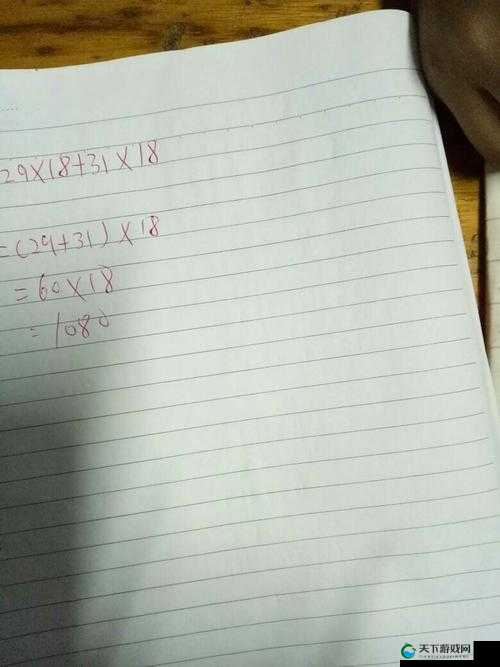 29×18+31×18
=(29+31)×18
=60×18
=1080
天下游戏网